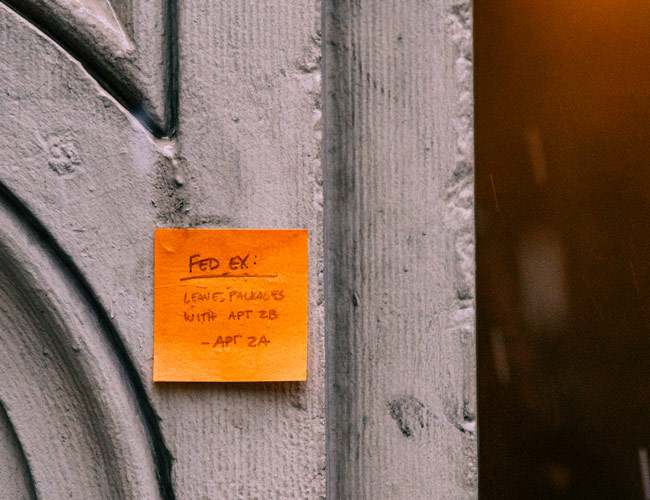 FED EX:
LEAVE PACKAGES
WITH APT 2B
- APT 2A